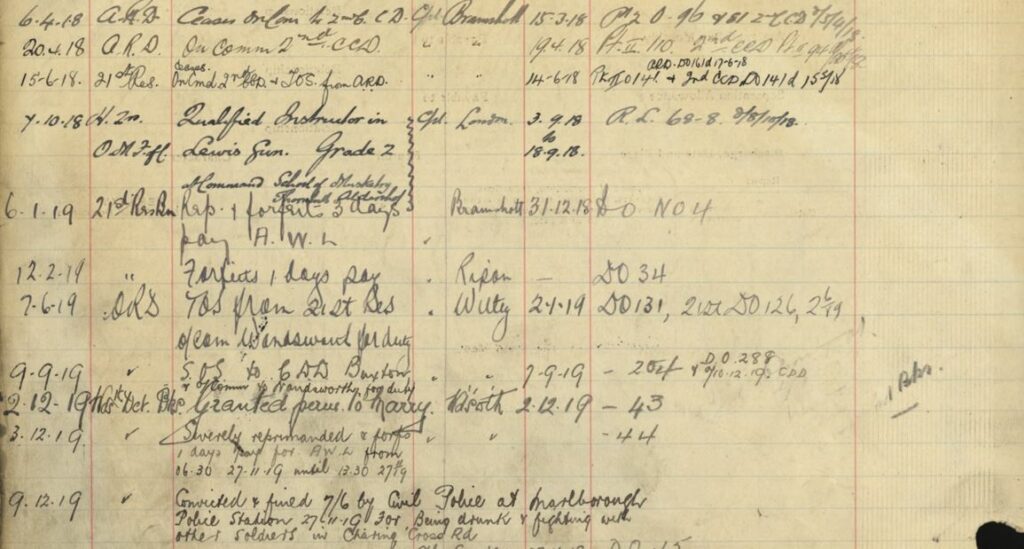 6.4.18 A.R.D Ceases on Com to 2nd C.C.D. Cpl Bramshott 15-3-18 Pt 2 O. 96
20.4.18 A.R.D. On Comm 2nd CCD. " " 19.4.18 Pt. II 110. 2nd CCD
ARD. DO161d 17-6-18
Ceases
15-6-18. 21st Res. On Cmd 2nd CCD. & TOS. from ARD. " " 14-6-18 Pt II O 141 & 2nd CCD DO 141 d 15/6/18
7.10.18 Qualified Instructor in Cpl. London. 3.9.18 R.L. 68-8.
O.M.F. Lewis Gun. Grade 2 to 18.9.18.
at Command School of Musketry
6.1.19 21st Res Bn Rep. & forfeit 3 days Bramshott 31.12.18 D O NO 4
pay A.W.L "
12.2.19 " Forfeits 1 days pay " Ripon — DO 34
7-6-19 TOS from 21st Res " Witley 2-1-19 DO 131, 21st DO 126,
o/com Wandsworth for duty
9-9-19 " S.O.S to C D D Buxton " " 7-9-19 - 204 & D.O. 288
& o/Comm to Wandsworth, for duty
2-12-19 Granted perm. to Marry. 2.12.19 - 43
1 Bks.
3.12.19 " Severely reprimanded & forfs " " - 44
1 days pay for A.W.L from
06.30 27-11-19 until 13.30 27th
9.12.19 " Convicted & fined 7/6 by Civil Police at Marlborough
Police Station 27-11-19 for Being drunk & fighting with
other soldiers in Charing Cross Rd
D O 15